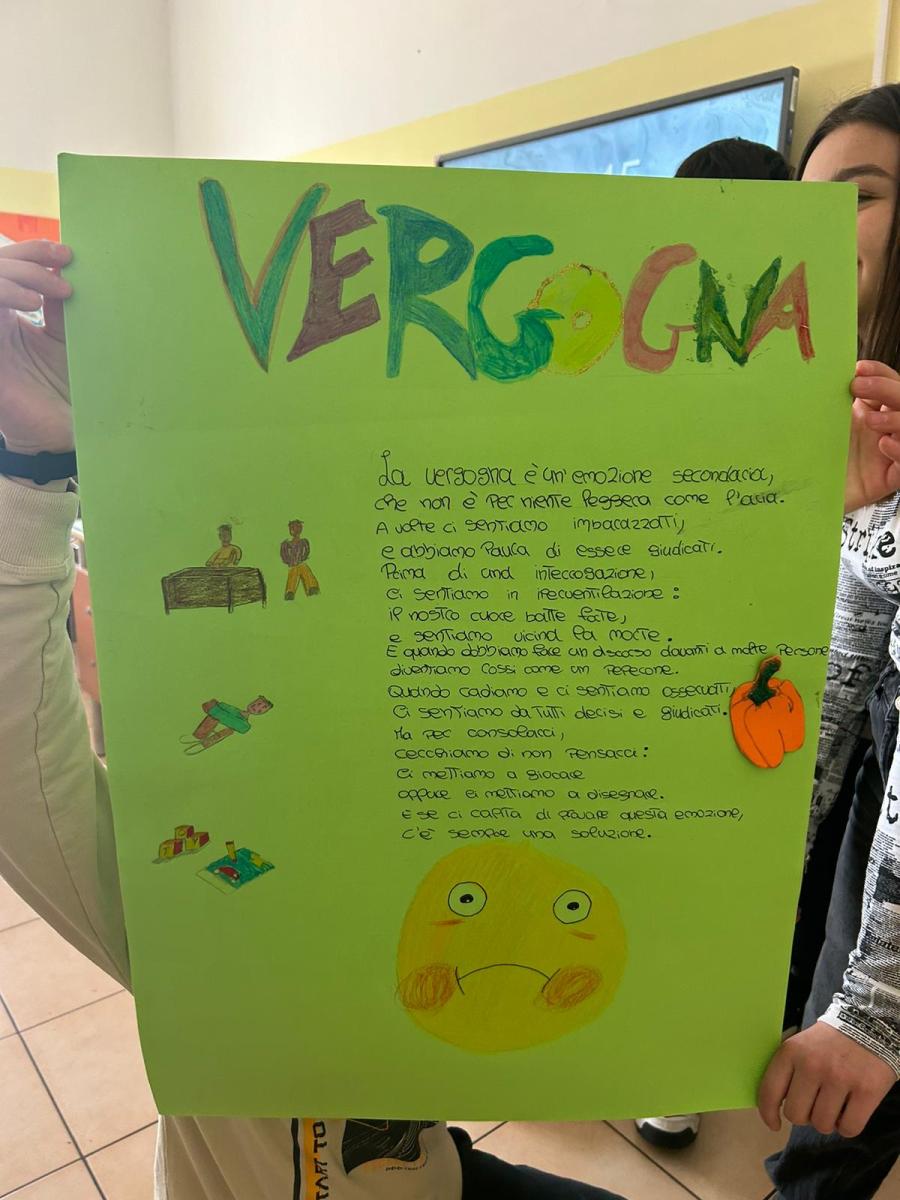 VERGOGNA
La vergogna è un'emozione secondaria,
che non è per niente leggera come l'aria.
A volte ci sentiamo imbarazzati,
e abbiamo Paura di essere giudicati.
Prima di una interrogazione,
ci sentiamo in iperventilazione:
il nostro cuore batte forte,
e sentiamo vicina la morte.
E quando dobbiamo fare un discorso davanti a molte Persone
diventiamo Rossi come un Peperone.
Quando cadiamo e ci sentiamo osservati,
Ci sentiamo da tutti derisi e giudicati.
Ma per consolarci,
cerchiamo di non Pensarci:
ci mettiamo a giocare
oppure ci mettiamo a disegnare.
E se ci capita di provare questa emozione,
c'è sempre una soluzione.